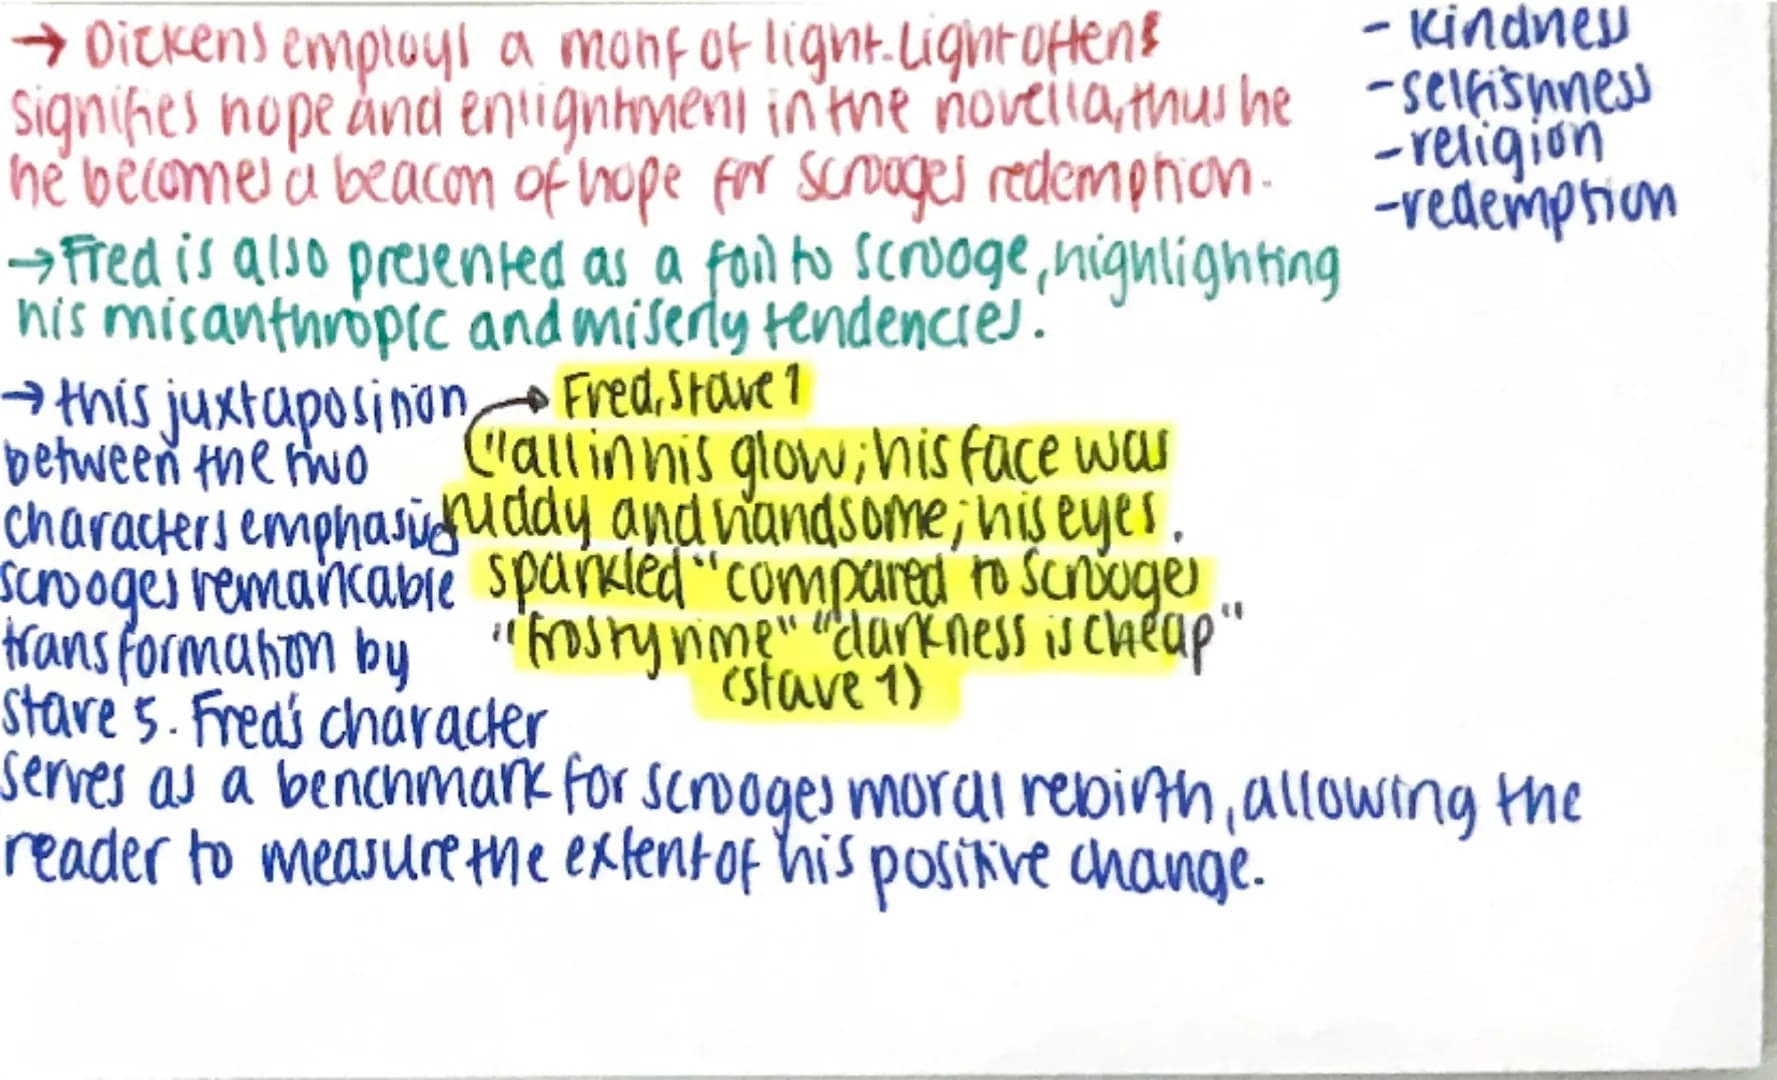 → Dickens employs a motif of light. Light often
signifies hope and enlightment in the novella, thus he
he becomes a beacon of hope for Scrooges redemption.
- kindness
- selfishness
- religion
- redemption
→ Fred is also presented as a foil to Scrooge, highlighting
his misanthropic and miserly tendencies.
→ this juxtaposition
between the two
characters emphasises
scrooges remarkable
transformation by
stave 5. Fred's character
serves as a benchmark for scrooges moral rebirth, allowing the
reader to measure the extent of his positive change.
→ Fred, Stave 1
("all in his glow; his face was
ruddy and handsome; his eyes.
sparkled" compared to Scrooges
"frosty rime" "darkness is cheap"
(stave 1)